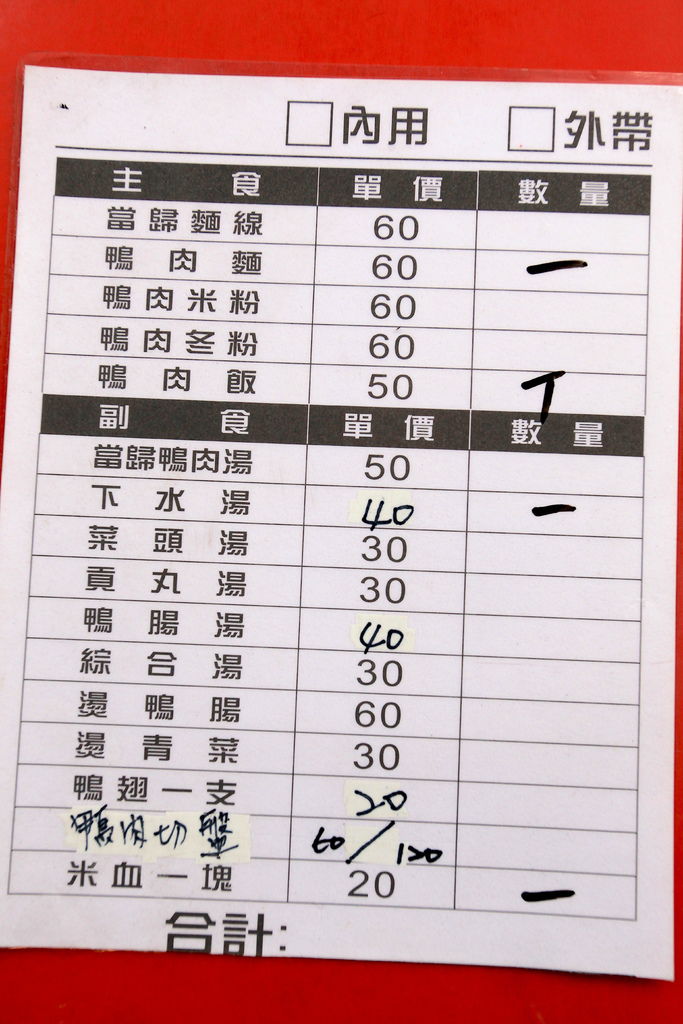 □內用 □外帶
主食 單價 數量
當歸麵線 60
鴨肉麵 60 一
鴨肉米粉 60
鴨肉冬粉 60
鴨肉飯 50 丅
副食 單價 數量
當歸鴨肉湯 50
下水湯 40 一
菜頭湯 30
貢丸湯 30
鴨腸湯 40
綜合湯 30
燙鴨腸 60
燙青菜 30
鴨翅一支 20
鴨肉切盤 60/120
米血一塊 20 一
合計: